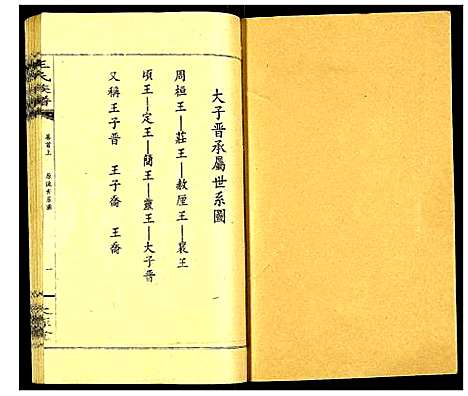 大子晋承屬世系圖
周桓王—莊王—敖厘王—襄王
頃王—定王—簡王—靈王—大子晋
又稱王子晋 王子喬 王喬
王氏族譜
卷首上
一